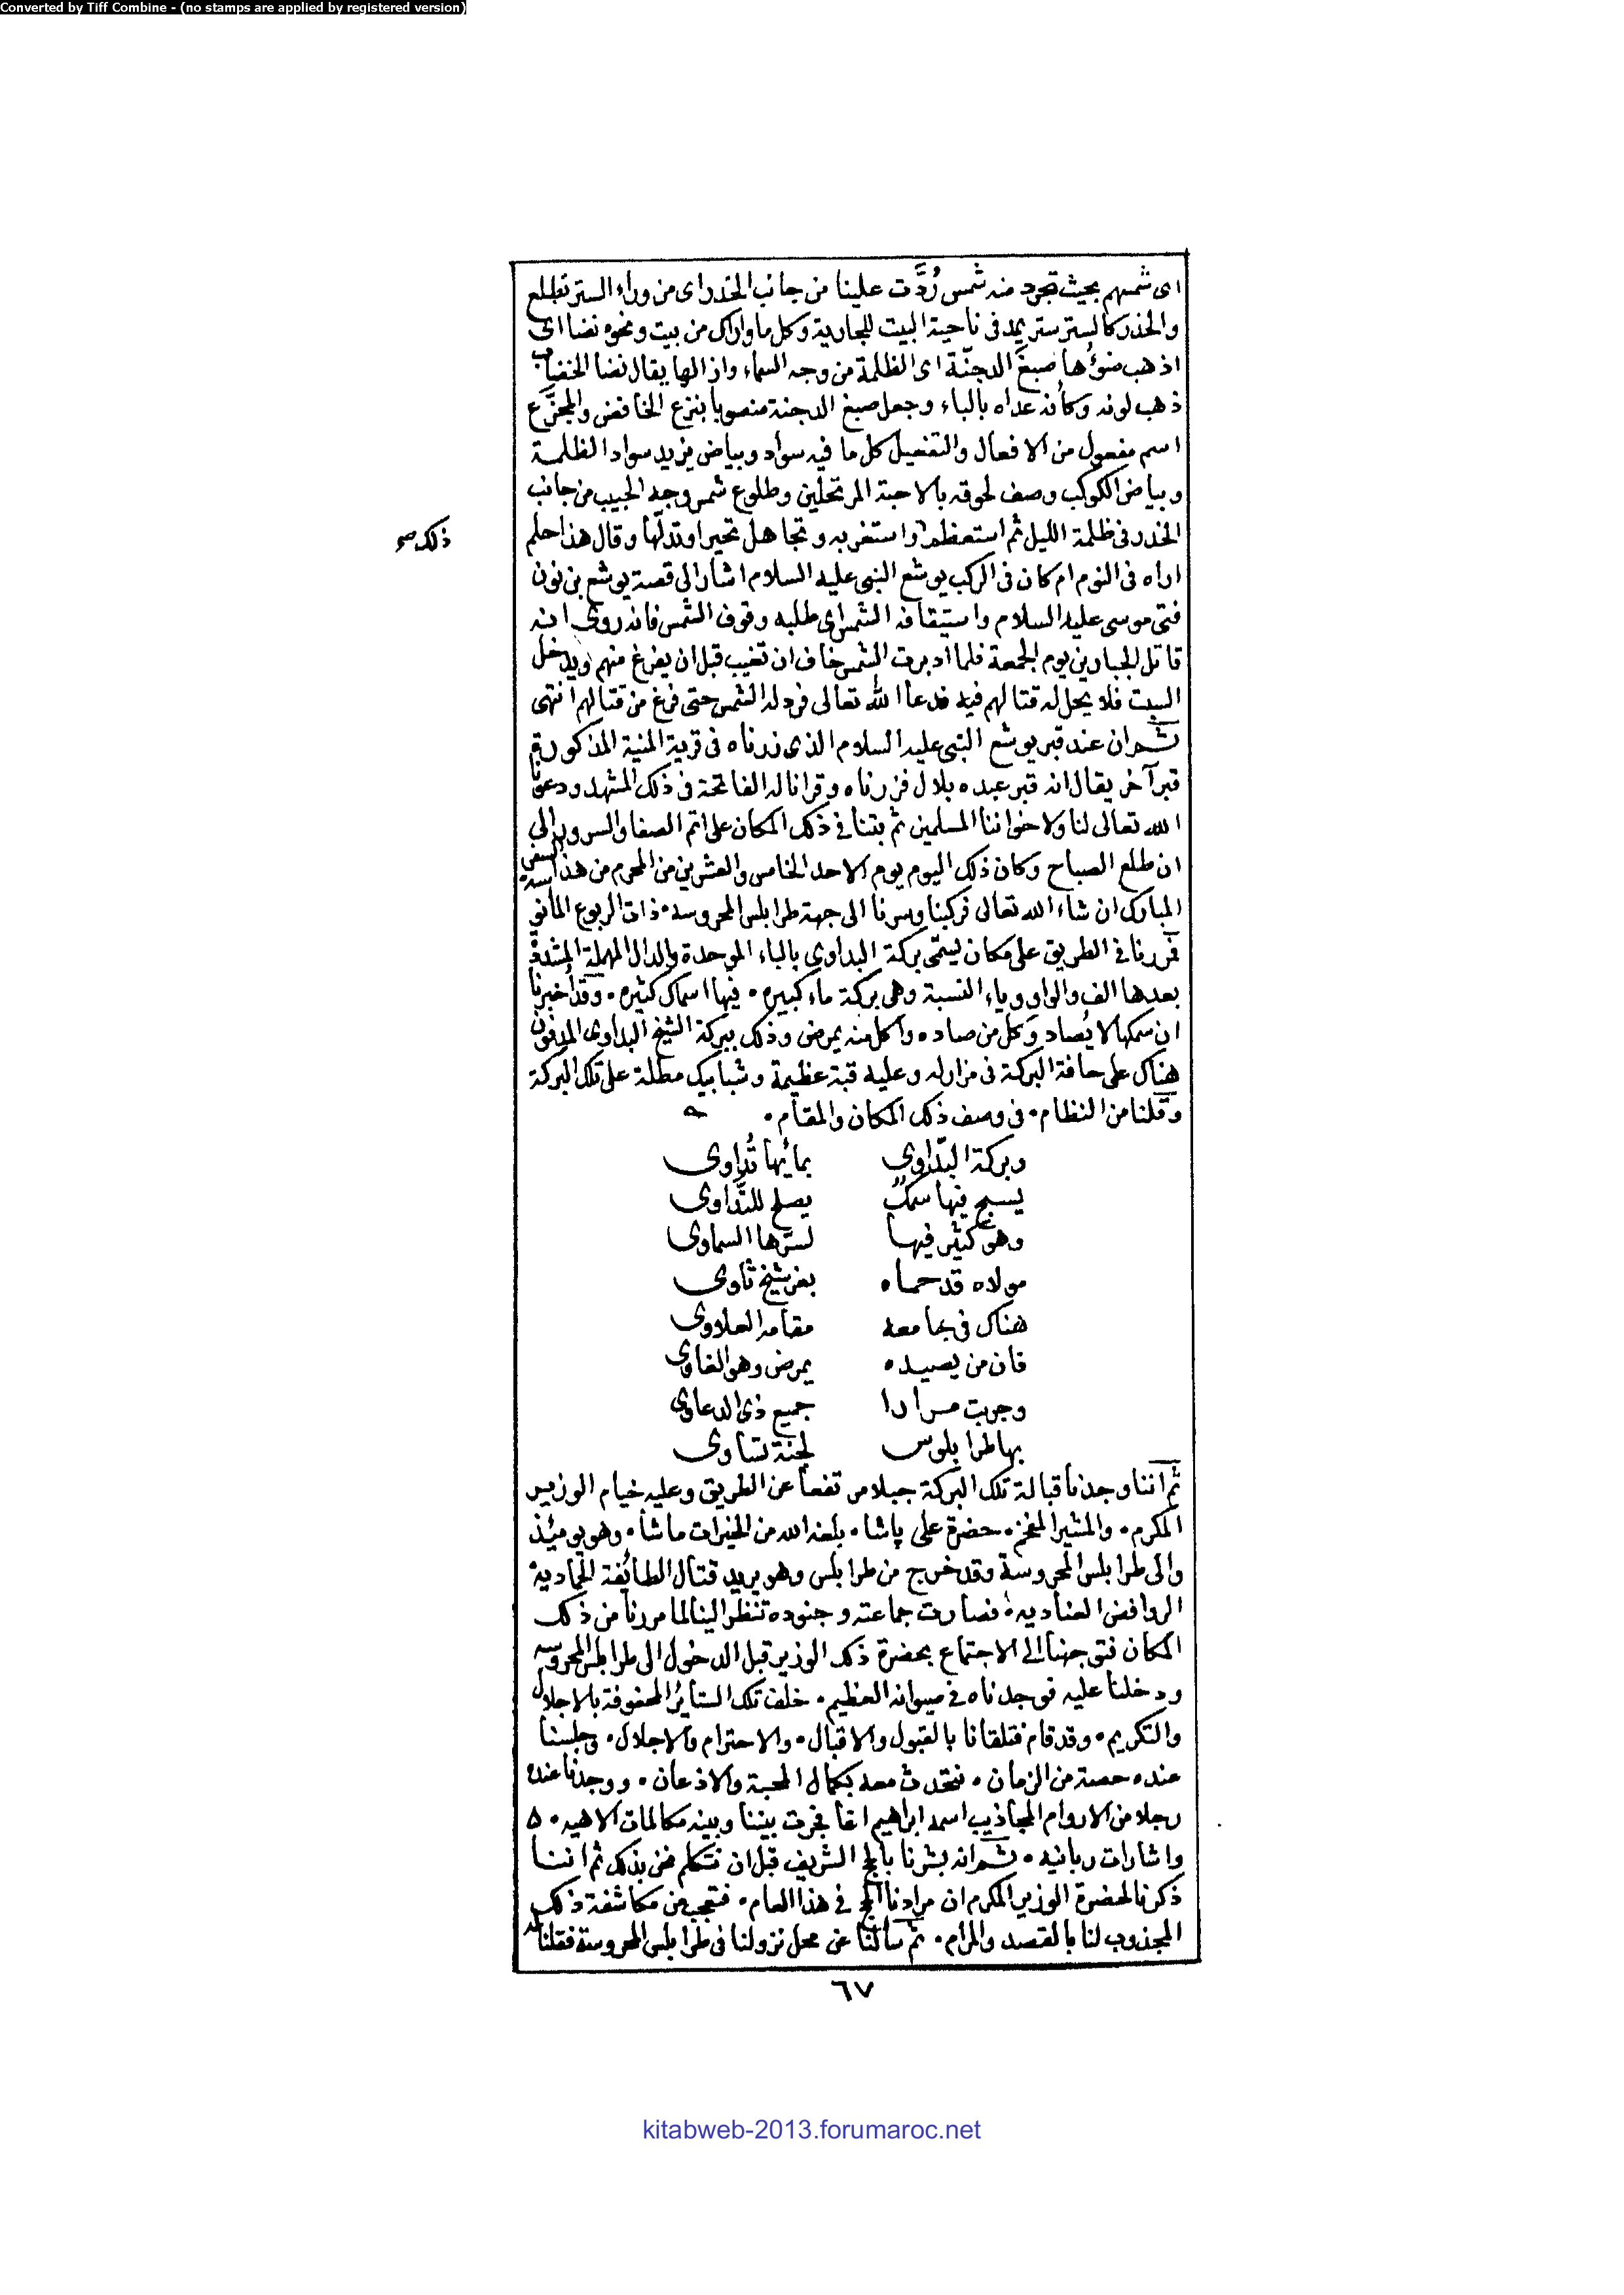 Converted by Tiff Combine - (no stamps are applied by registered version)
اى شمسهم بحيث تجرد منه شمس رُدَّت علينا من جانب الخدر اى من وراء الستر تطلع
والخدر كالستر ستر يمد فى ناحية البيت للجارية وكل ما واراك من بيت ونحوه نضا اى
اذهب ضوؤها صبغَ الدجنّة اى الظلمة من وجه السماء وازالها يقال نضا الخضاب
ذهب لونه وكأنه عداه بالباء وجعل صبغ الدجنة منصوبا بنزع الخافض والمجزَّع
اسم مفعول من الافعال والتفعيل كل ما فيه سواد وبياض يريد سواد الظلمة
وبياض الكوكب وصف لحوقه بالاحبة المرتحلين وطلوع شمس وجه الحبيب من جانب
الخدر فى ظلمة الليل ثم استعظم واستغربه وتجاهل تحيرا وتدلّها وقال هذا حلم
ذلك صح
اراه فى النوم ام كان فى الركب يوشع النبى عليه السلام اشار الى قصة يوشع بن نون
فتى موسى عليه السلام واستيقافه الشمس اى طلبه وقوف الشمس فانه روى انه
قاتل الجبارين يوم الجمعة فلما ادبرت الشمس خاف ان تغيب قبل ان يفرغ منهم ويدخل
السبت فلا يحل له قتالهم فيه فدعا الله تعالى فرد له الشمس حتى فرغ من قتالهم انتهى
ثم ان عند قبر يوشع النبى عليه السلام الذى زرناه فى قرية المنية المذكورة
قبر آخر يقال انه قبر عبده بلال فزرناه وقرانا له الفاتحة فى ذلك المشهد ودعونا
الله تعالى لنا ولاخواننا المسلمين ثم بتنا فى ذلك المكان على اتم الصفا والسرور الى
ان طلع الصباح وكان ذلك اليوم يوم الاحد الخامس والعشرين من المحرم من هذا السفر
المبارك ان شاء الله تعالى فركبنا وسرنا الى جهة طرابلس المحروسه ٠ ذات الربوع المأنوسة
فمررنا فى الطريق على مكان يسمّى بركة البداوى بالباء الموحدة والدال المهملة المشددة
بعدها الف والواو وياء النسبة وهى بركة ماء كبيره ٠ فيها اسماك كثيره ٠ وقد أخبرنا
ان سمكها لا يُصاد وكل من صاده واكل منه يمرض وذلك ببركة الشيخ البداوى المدفون
هناك على حافة البركة فى مزار له وعليه قبة عظيمة وشبابيك مطلة على تلك البركة
وقلنا من النظام ٠ فى وصف ذلك المكان والمقام ٠
وبركة البدّاوى بمائها تُداوى
يسبح فيها سمكٌ يصلح للتَّداوى
وهو كثير فيها لسرّها السماوى
مولاه قد حماه بعز شيخ ثاوى
هناك فى جامعه مقامه العلاوى
فان من يصيده يمرض وهو الغاوى
وجربت مرارا جميع ذى الدعاوى
بها طرابلوس لجنة تساوى
ثم اننا وجدنا قبالة تلك البركة جبلا مرتفعا عن الطريق وعليه خيام الوزير
المكرم ٠ والمشير المفخم ٠ حضرة على پاشا ٠ بلغه الله من الخيرات ما شا ٠ وهو يومئذ
والى طرابلس المحروسة وقد خرج من طرابلس وهو يريد قتال الطائفة الحمادية
الروافض العناديه ٠ فصارت جماعته وجنوده تنظر الينا لما مررنا من ذلك
المكان فتوجهنا الى الاجتماع بحضرة ذلك الوزير قبل الدخول الى طرابلس المحروسه
ودخلنا عليه فوجدناه فى صيوانه العظيم ٠ خلف تلك الستائر المحفوفة بالاجلال
والتكريم ٠ وقد قام فتلقانا بالقبول والاقبال ٠ والاحترام والاجلال ٠ وجلسنا
عنده حصة من الزمان ٠ نتحدث معه بكمال المحبة والاذعان ٠ ووجدنا عنده
رجلا من الاروام المجاذيب اسمه ابراهيم اغا فجرت بيننا وبينه مكالمات الاهيه ٠
واشارات ربانيه ٠ ثم انه بشرنا بالحج الشريف قبل ان نتكلم نحن بذلك ثم اننا
ذكرنا لحضرة الوزير المكرم ان مرادنا الحج فى هذا العام ٠ فتعجب من مكاشفة ذلك
المجذوب لنا بالقصد والمرام ٠ ثم سألنا عن محل نزولنا فى طرابلس المحروسة فقلنا له
٦٧
kitabweb-2013.forumaroc.net